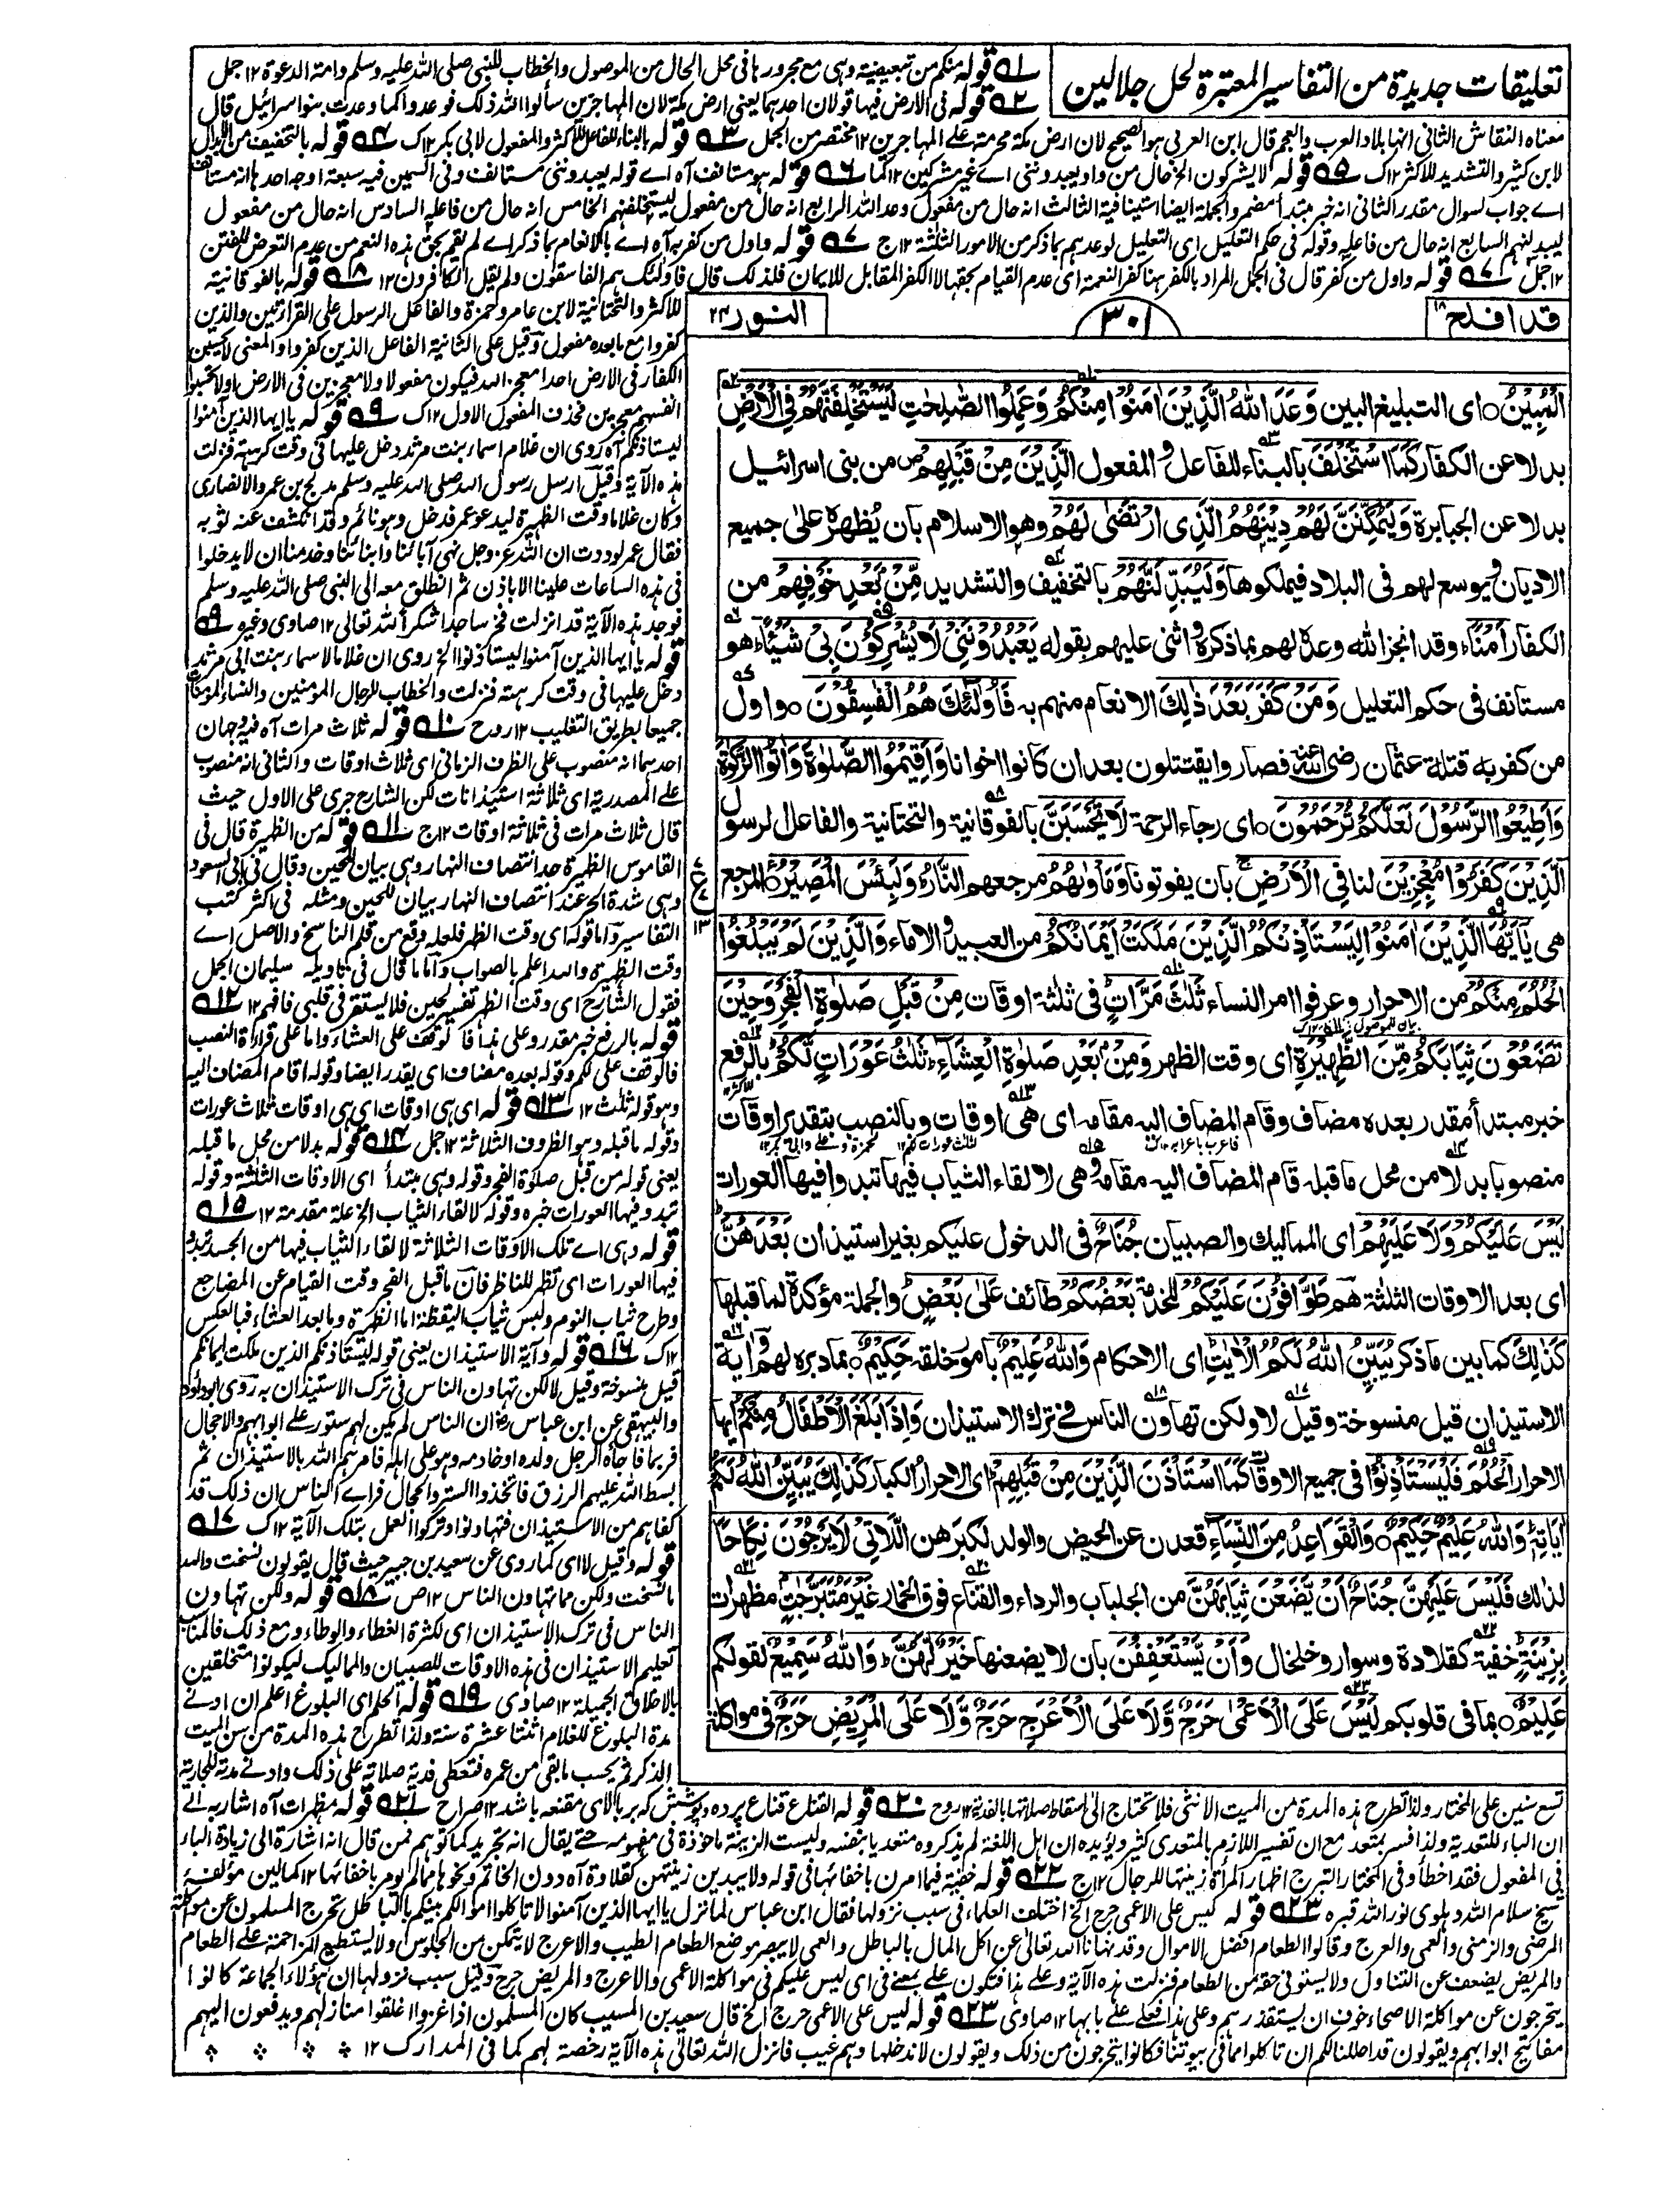 تعليقات جديدة من التفاسير المعتبرة لحل جلالين
١ قوله منكم من تبعيضية وهى مع مجرورها فى محل الحال من الموصول والخطاب للنبى صلى الله عليه وسلم وامته الدعوة ١٢ جمل
٢ قوله فى الارض فيها قولان احدهما يعنى ارض مكة لان المهاجرين سألوا الله ذلك فوعدوا كما وعدت بنو اسرائيل قال
معناه النقاش الثانى انها بلاد العرب والعجم قال ابن العربى هو الصحيح لان ارض مكة محرمة على المهاجرين ١٢ مختصر من الجمل ٣ قوله بالبناء للفاعل للأكثر والمفعول لابى بكر ١٢ك ٤ قوله بالتخفيف من الابدال
لابن كثير والتشديد للاكثر ١٢ك ٥ قوله لا يشركون الخ حال من واو يعبدوننى اے غير مشركين ١٢ ٦ قوله هو مستانف آه اے قوله يعبدوننى مستانف وفى السمين فيه سبعة اوجه احدها انه مستانف
اے جواب لسوال مقدر الثانى انه خبر مبتدأ مضمر والجملة ايضا استينافية الثالث انه حال من مفعول وعد الله الرابع انه حال من مفعول ليستخلفنهم الخامس انه حال من فاعله السادس انه حال من مفعول
ليبدلنهم السابع انه حال من فاعله وقوله فى حكم التعليل اى التعليل لوعدهم بما ذكر من الامور الثلثة ١٢ج ٧ قوله واول من كفر به آه اے بالانعام بما ذكر اے لم يقم بحق هذه النعم من عدم التعرض للفتن
١٢ جمل ٧ قوله واول من كفر قال فى الجمل المراد بالكفر هنا كفر النعمة اى عدم القيام بحقها لا الكفر المقابل للايمان فلذلك قال فاولئك هم الفاسقون ولم يقل الكافرون ١٢ ٨ قوله بالفوقانية
قد افلح ١٨
٣٠١
النور ٢٤
الْمُبِيْنُ ○ اى التبليغ البين وَعَدَ اللّٰهُ الَّذِيْنَ اٰمَنُوْا مِنْكُمْ وَعَمِلُوا الصّٰلِحٰتِ لَيَسْتَخْلِفَنَّهُمْ فِى الْاَرْضِ
بدلا عن الكفار كَمَا اسْتَخْلَفَ بالبناء للفاعل والمفعول الَّذِيْنَ مِنْ قَبْلِهِمْ من بنى اسرائيل
بدلا عن الجبابرة وَلَيُمَكِّنَنَّ لَهُمْ دِيْنَهُمُ الَّذِى ارْتَضٰى لَهُمْ وهو الاسلام بان يُظهرهٗ على جميع
الاديان ويوسع لهم فى البلاد فيملكوها وَلَيُبَدِّلَنَّهُمْ بالتخفيف والتشديد مِّنْ بَعْدِ خَوْفِهِمْ من
الكفار اَمْنًا وقد انجز الله وعده لهم بما ذكره واثنى عليهم بقوله يَعْبُدُوْنَنِىْ لَا يُشْرِكُوْنَ بِىْ شَيْئًا هو
مستانف فى حكم التعليل وَمَنْ كَفَرَ بَعْدَ ذٰلِكَ الانعام منهم به فَاُولٰٓئِكَ هُمُ الْفٰسِقُوْنَ ○ واول
من كفر به قتلة عثمان رضى الله عنه فصاروا يقتتلون بعد ان كانوا اخوانا وَاَقِيْمُوا الصَّلٰوةَ وَاٰتُوا الزَّكٰوةَ
وَاَطِيْعُوا الرَّسُوْلَ لَعَلَّكُمْ تُرْحَمُوْنَ ○ اى رجاء الرحمة لَا تَحْسَبَنَّ بالفوقانية والتحتانية والفاعل الرسول
الَّذِيْنَ كَفَرُوْا مُعْجِزِيْنَ لنا فِى الْاَرْضِ بان يفوتونا وَمَاْوٰىهُمُ مرجعهم النَّارُ وَلَبِئْسَ الْمَصِيْرُ ○ المرجع
هى يٰٓاَيُّهَا الَّذِيْنَ اٰمَنُوْا لِيَسْتَاْذِنْكُمُ الَّذِيْنَ مَلَكَتْ اَيْمَانُكُمْ من العبيد والاماء وَالَّذِيْنَ لَمْ يَبْلُغُوا
الْحُلُمَ مِنْكُمْ من الاحرار وعرفوا امر النساء ثَلٰثَ مَرّٰتٍ فى ثلثة اوقات مِنْ قَبْلِ صَلٰوةِ الْفَجْرِ وَحِيْنَ
تَضَعُوْنَ ثِيَابَكُمْ مِّنَ الظَّهِيْرَةِ اى وقت الظهر وَمِنْ بَعْدِ صَلٰوةِ الْعِشَآءِ ثَلٰثُ عَوْرَاتٍ لَّكُمْ بالرفع
خبر مبتدأ مقدر بعده مضاف وقام المضاف اليه مقامه اى هى اوقات وبالنصب بتقدير اوقات
منصوبا بدلا من محل ما قبله قام المضاف اليه مقامه وهى لالقاء الثياب فيها تبدو فيها العورات
لَيْسَ عَلَيْكُمْ وَلَا عَلَيْهِمْ اى المماليك والصبيان جُنَاحٌ فى الدخول عليكم بغير استيذان بَعْدَهُنَّ
اى بعد الاوقات الثلثة هم طَوّٰفُوْنَ عَلَيْكُمْ للخدمة بَعْضُكُمْ طائف عَلٰى بَعْضٍ والجملة مؤكدة لما قبلها
كَذٰلِكَ كما بين ما ذكر يُبَيِّنُ اللّٰهُ لَكُمُ الْاٰيٰتِ اى الاحكام وَاللّٰهُ عَلِيْمٌ بامور خلقه حَكِيْمٌ ○ بما دبره لهم واٰية
الاستيذان قيل منسوخة وقيل لا ولكن تهاون الناس فى ترك الاستيذان وَاِذَا بَلَغَ الْاَطْفَالُ مِنْكُمُ ايها
الاحرار الْحُلُمَ فَلْيَسْتَاْذِنُوْا فى جميع الاوقات كَمَا اسْتَاْذَنَ الَّذِيْنَ مِنْ قَبْلِهِمْ اى الاحرار الكبار كَذٰلِكَ يُبَيِّنُ اللّٰهُ لَكُمْ
اٰيٰتِهٖ وَاللّٰهُ عَلِيْمٌ حَكِيْمٌ ○ وَالْقَوَاعِدُ مِنَ النِّسَآءِ قعدن عن الحيض والولد لكبرهن الّٰتِىْ لَا يَرْجُوْنَ نِكَاحًا
لذلك فَلَيْسَ عَلَيْهِنَّ جُنَاحٌ اَنْ يَّضَعْنَ ثِيَابَهُنَّ من الجلباب والرداء والقناع فوق الخمار غَيْرَ مُتَبَرِّجٰتٍ مظهرات
بِزِيْنَةٍ خفية كقلادة وسوار وخلخال وَاَنْ يَّسْتَعْفِفْنَ بان لا يضعنها خَيْرٌ لَّهُنَّ وَاللّٰهُ سَمِيْعٌ لقولكم
عَلِيْمٌ ○ بما فى قلوبكم لَيْسَ عَلَى الْاَعْمٰى حَرَجٌ وَّلَا عَلَى الْاَعْرَجِ حَرَجٌ وَّلَا عَلَى الْمَرِيْضِ حَرَجٌ فى مواكلة
للاكثر والتحتانية لابن عامر وحمزة والفاعل الرسول على القراءتين والذين
كفروا مع ما بعده مفعول وقيل على الثانية الفاعل الذين كفروا والمعنى لا يحسبن
الكفار فى الارض احدا معجز الله فيكون مفعولا ولا معجزين فى الارض اولا يحسبوا
انفسهم معجزين فحذف المفعول الاول ١٢ك ٩ قوله يا ايها الذين آمنوا
ليستاذنكم آه روى ان غلام اسماء بنت مرثد دخل عليها فى وقت كرهته فنزلت
هذه الآية وقيل ارسل رسول الله صلى الله عليه وسلم مدلج بن عمرو الانصارى
وكان غلاما وقت الظهيرة ليدعو عمر فدخل وهو نائم وقد انكشف عنه ثوبه
فقال عمر لوددت ان الله عز وجل نهى آبائنا وابنائنا وخدمنا ان لا يدخلوا
فى هذه الساعات علينا الا باذن ثم انطلق معه الى النبى صلى الله عليه وسلم
فوجد هذه الآية قد انزلت فخر ساجدا شكرا لله تعالى ١٢ صاوى وغيره ٩
قوله يا ايها الذين آمنوا ليستاذنوا الخ روى ان غلاما لاسماء بنت ابى مرثد
دخل عليها فى وقت كرهته فنزلت والخطاب للرجال المؤمنين والنساء المؤمنات
جميعا بطريق التغليب ١٢ روح ١٠ قوله ثلاث مرات آه فيه وجهان
احدهما انه منصوب على الظرف الزمانى اى ثلاث اوقات والثانى انه منصوب
على المصدرية اى ثلاثة استيذانات لكن الشارح جرى على الاول حيث
قال ثلاث مرات فى ثلاثة اوقات ١٢ج ١١ قوله من الظهيرة قال فى
القاموس الظهيرة حد انتصاف النهار وهى بيان للحين وقال فى ابى السعود
وهى شدة الحر عند انتصاف النهار بيان للحين ومثله فى اكثر كتب
التفاسير واما قوله اى وقت الظهر فلعله وقع من قلم الناسخ والاصل اے
وقت الظهيرة والله اعلم بالصواب واما ما قال فى تاويله سليمان الجمل
فقول الشارح اى وقت الظهر تفسير لحين فلا يستقر فى قلبى فافهم ١٢ ١٢
قوله بالرفع خبر مقدر وعلى هذا فالوقف على العشاء واما على قراءة النصب
فالوقف على لكم وقوله بعده مضاف اى يقدر ايضا وقوله اقام المضاف اليه
وهو قوله ثلث ١٢ ١٣ قوله اى هى اوقات اى هى اوقات ثلاث عورات
وقوله ما قبله وهو الظروف الثلاثة ١٢ جمل ١٤ قوله بدلا من محل ما قبله
يعنى قوله من قبل صلوة الفجر وقوله وهى مبتدأ اى الاوقات الثلثة وقوله
تبدو فيها العورات خبره وقوله لالقاء الثياب الخ علة مقدمة ١٢ ١٥
قوله وهى اے تلك الاوقات الثلاثة لالقاء الثياب فيها من الجسد تبدو
فيها العورات اى تظهر للناظر فان ما قبل الفجر وقت القيام عن المضاجع
وطرح ثياب النوم ولبس ثياب اليقظة اما الظهيرة وما بعد العشاء فبالعكس
١٢ك ١٦ قوله وآية الاستيذان يعنى قوله ليستاذنكم الذين ملكت ايمانكم
قيل منسوخة وقيل لا لكن تهاون الناس فى ترك الاستيذان به روى ابو داود
والبيهقى عن ابن عباس رض ان الناس لم يكن لهم ستور على ابوابهم ولا حجال
فربما فاجأه الرجل ولده او خادمه وهو على اهله فامرهم الله بالاستيذان ثم
بسط الله عليهم الرزق فاتخذوا الستر والحجال فراى الناس ان ذلك قد
كفاهم من الاستيذان فتهاونوا وتركوا العمل بتلك الآية ١٢ك ١٧
قوله وقيل لا اى كما روى عن سعيد بن جبير حيث قال يقولون نسخت والله
ما نسخت ولكن مما تهاون الناس ١٢ص ١٨ قوله ولكن تهاون
الناس فى ترك الاستيذان اى لكثرة الغطاء والوطاء ومع ذلك فالمناسب
تعليم الاستيذان فى هذه الاوقات للصبيان والمماليك ليكونوا متخلقين
بالاخلاق الجميلة ١٢ صاوى ١٩ قوله الحلم اى البلوغ اعلم ان ادنى
مدة البلوغ للغلام اثنتا عشرة سنة ولذا تطرح هذه المدة من سن الميت
الذكر ثم يحسب ما بقى من عمره فتعطى فدية صلاته على ذلك وادنى مدته للجارية
تسع سنين على المختار ولذا تطرح هذه المدة من الميت الانثى فلا تحتاج الى اسقاط صلاتها بالفدية ١٢ روح ٢٠ قوله القناع قناع پرده وپوشش كه بر بالاى مقنعه باشد ١٢ صراح ٢١ قوله مظهرات آه اشار به الى
ان الباء للتعدية ولذا فسر بمتعد مع ان تفسير اللازم بالمتعدى كثير ويؤيده ان اهل اللغة لم يذكروه متعديا بنفسه وليست الزينة ماخوذة فى مفهومه حتى يقال انه تجريد كما توهم فمن قال انه اشارة الى زيادة الباء
فى المفعول فقد اخطأ وفى المختار التبرج اظهار المرأة زينتها للرجال ١٢ج ٢٢ قوله خفية فيما امرن باخفائها فى قوله ولا يبدين زينتهن كقلادة آه دون الخاتم ونحوها مما لم يؤمر باخفائها ١٢ كمالين مؤلفه
شيخ سلام الله دهلوى نور الله قبره ٢٣ قوله ليس على الاعمى حرج الخ اختلف العلماء فى سبب نزولها فقال ابن عباس لما نزل يا ايها الذين آمنوا لا تاكلوا اموالكم بينكم بالباطل تحرج المسلمون عن مواكلة
المرضى والزمنى والعمى والعرج وقالوا الطعام افضل الاموال وقد نهانا الله تعالى عن اكل المال بالباطل والعمى لا يبصر موضع الطعام الطيب والاعرج لا يتمكن من الجلوس ولا يستطيع المزاحمة على الطعام
والمريض يضعف عن التناول ولا يستوفى حقه من الطعام فنزلت هذه الآية وعلى هذا فتكون على بمعنى فى اى ليس عليكم فى مواكلة الاعمى والاعرج والمريض حرج وقيل سبب نزولها ان هؤلاء الجماعة كانوا
يتحرجون عن مواكلة الاصحاء خوف ان يستقذرهم وعلى هذا فعلى على بابها ١٢ صاوى ٢٣ قوله ليس على الاعمى حرج الخ قال سعيد بن المسيب كان المسلمون اذا غزوا اغلقوا منازلهم ويدفعون اليهم
مفاتيح ابوابهم ويقولون قد احللنا لكم ان تاكلوا مما فى بيوتنا فكانوا يتحرجون من ذلك ويقولون لا ندخلها وهم غيب فانزل الله تعالى هذه الآية رخصة لهم كما فى المدارك ١٢